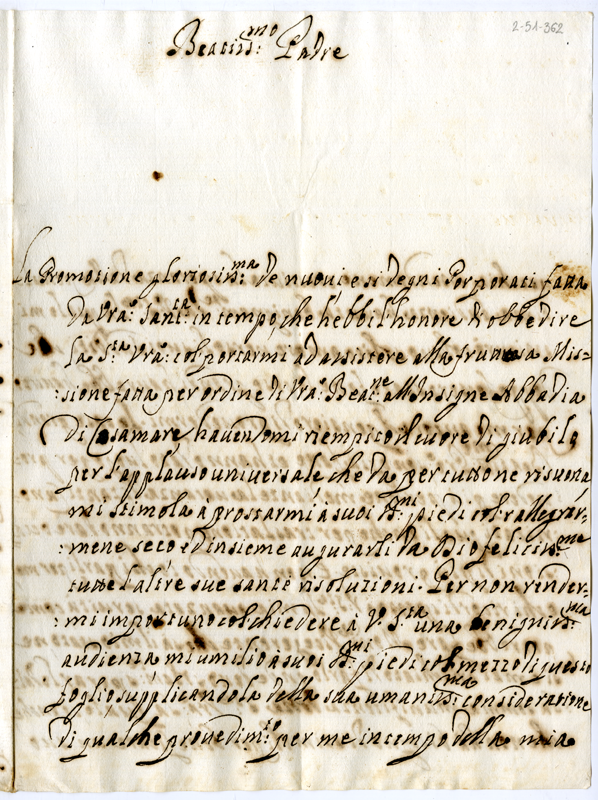 2-51-362
Beatiss:mo Padre
La Promotione gloriosiss:ma de nuovi e sì degni Porporati fatta
da Vra: Sant:ta in tempo, che hebbi l'honore di obbedire
la S:ta Vra: col portarmi ad assistere alla Mis=
:sione fatta per ordine di Vra: Beat:ne all'Insigne Abbadia
di Casamare, havendomi riempito il cuore di giubilo
per l'applauso universale che da per tutto ne risuona
mi stimola à prostarmi à suoi S:mi piedi col rallegrar=
:mene seco, ed insieme augurarli da Dio feliciss:me
tutte l'altre sue sante risoluzioni. Per non render=
:mi importuno col chiedere à V: S:tà una benigniss:ma
audienza, mi umilio à suoi S:mi piedi col mezzo di questo
foglio, supplicandola della sua umaniss:ma consideratione
di qualche provedim:to per me in tempo della mia